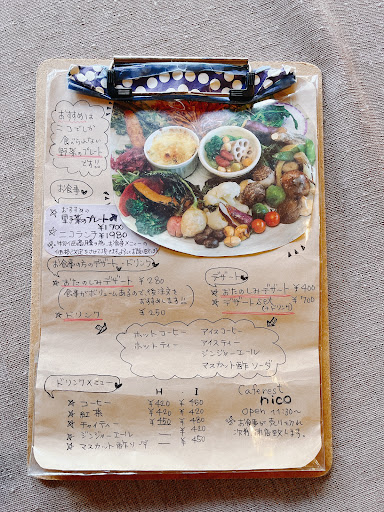 おすすめは
ニコでしか
食べられない
野菜のプレート
です!!
お食事
おすすめ
里野菜のプレート
¥1700
☆ ニコランチ ¥1980
お食事の方のデザート・ドリンク
☆ おたのしみデザート ¥280
食事がボリュームあるので
おすすめします!!
☆ ドリンク ¥250
デザート
☆ おたのしみデザート ¥400
☆ デザートセット ¥700
(+ドリンク)
ホットコーヒー アイスコーヒー
ホットティー アイスティー
ジンジャーエール
マスカット酢ソーダ
ドリンクメニュー H I
☆ コーヒー ¥420 ¥450
☆ 紅茶 ¥420 ¥420
☆ チャイティ ¥450 ¥480
☆ ジンジャーエール — ¥420
☆ マスカット酢ソーダ — ¥450
Caferest
nico
open 11:30~
※お食事が売り切れ
次第閉店致します。